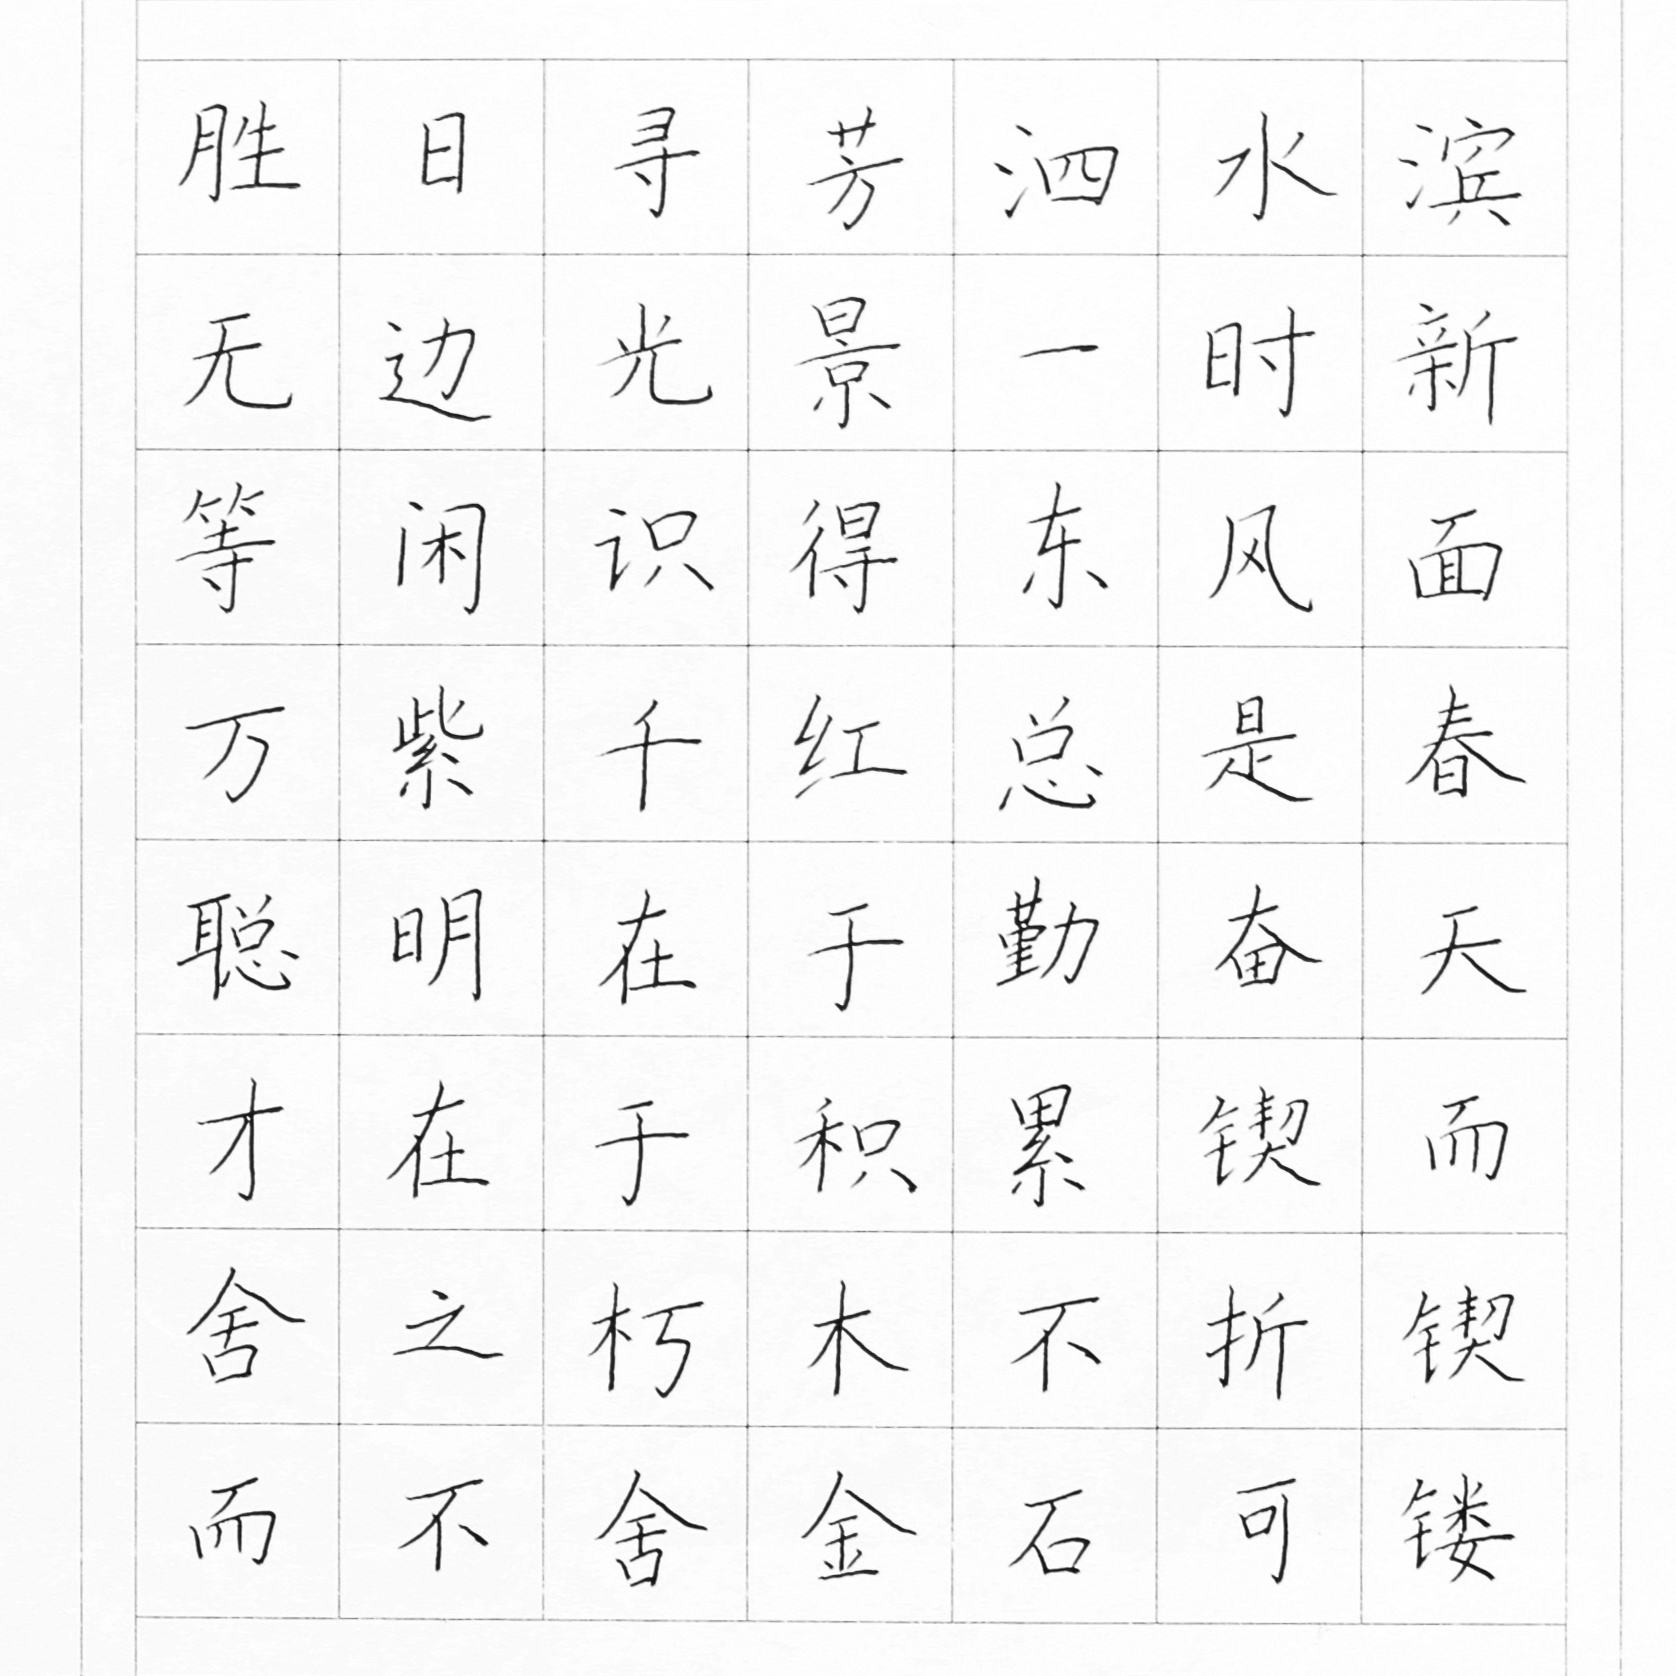 胜日寻芳泗水滨
无边光景一时新
等闲识得东风面
万紫千红总是春
聪明在于勤奋天
才在于积累锲而
舍之朽木不折锲
而不舍金石可镂